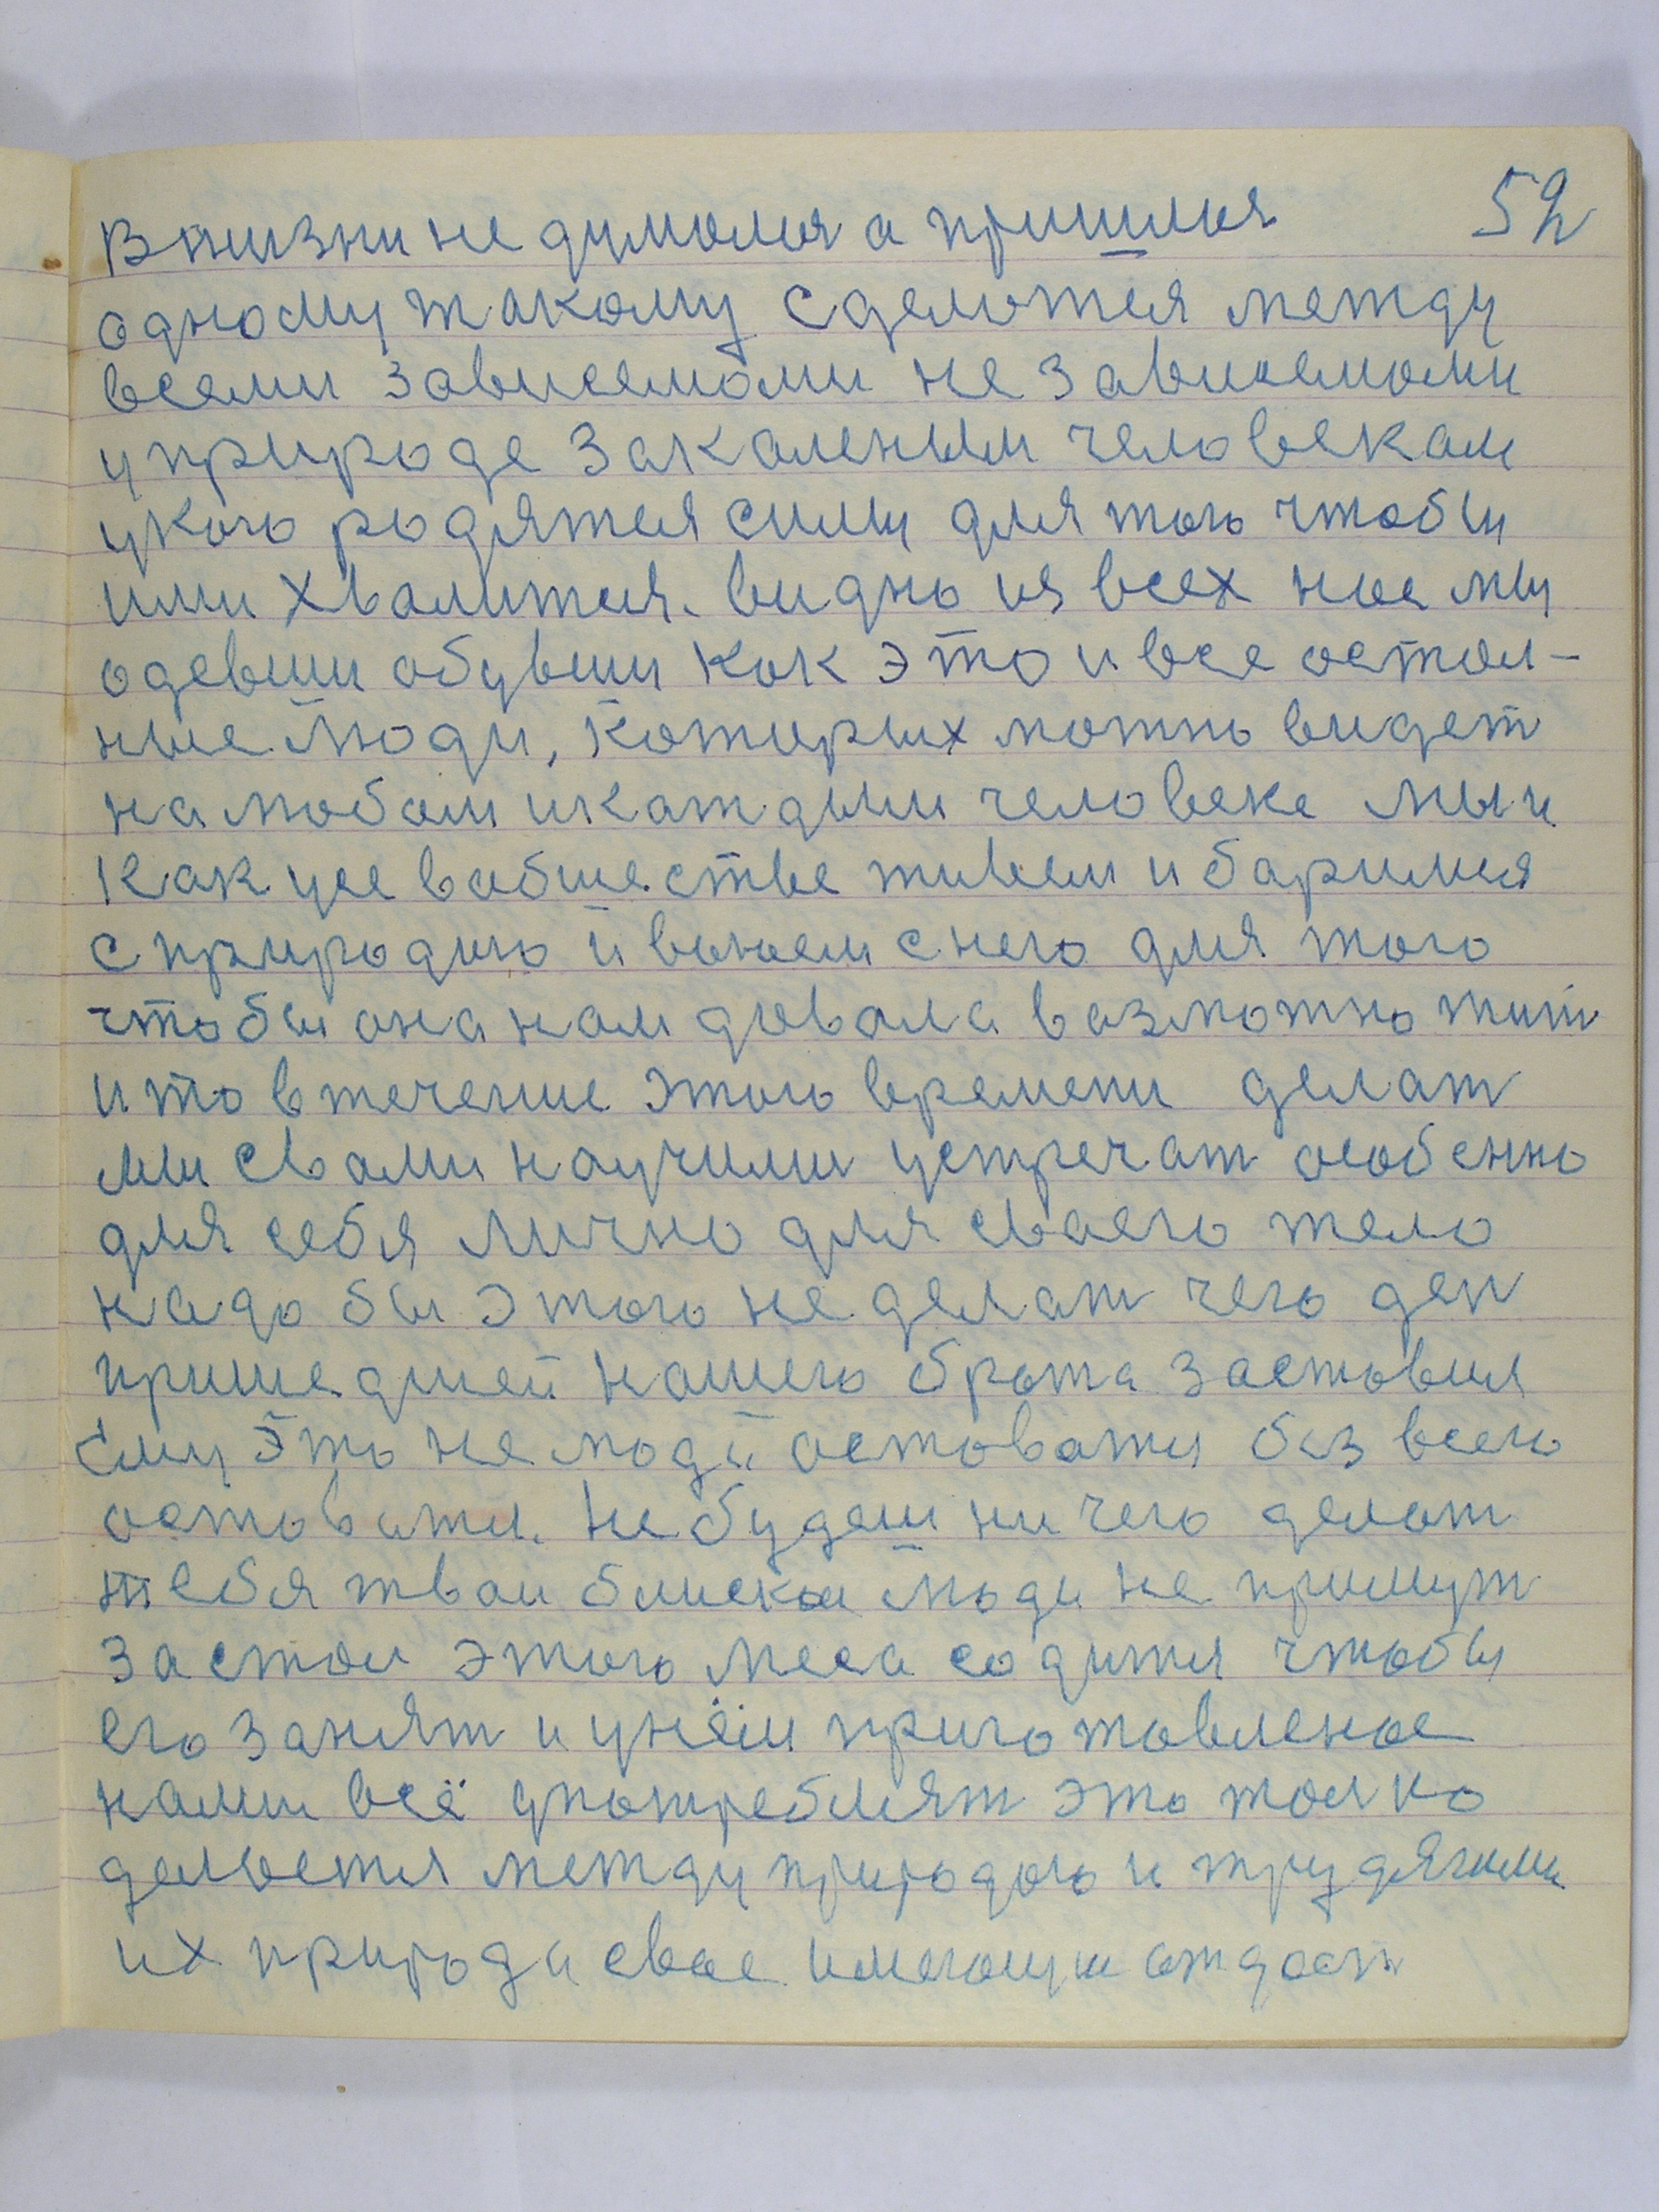 52
В жизни не думался а пришлося
одному такому сделатся между
всеми зависемами не зависемами
у природе закаленым человекам
у кого родятся силы для того чтобы
ими хвалится. видно из всех нас мы
одевши обувши как это и все остал-
ные люди, которых можно видет
на любом и каждым человеке мы и
как усе в обшестве живем и баримся
с природою и воюем с него для того
чтобы она нам давала возможно жит
и то в течение этого времени делат
мы с вами научили устречат особенно
для себя лично для сваего тело
надо бы этого не делат чего ден
пришедшей нашего брата заставил
ему это не люди оставатся без всего
остоватся. Не будеш ничего делат
тебя твои блиски люди не примут
за стол этого места садится чтобы
его занят и у нём приготовленое
нами всё употреблят это толко
делается между природою и трудягими
их природа свае имеющии отдаст